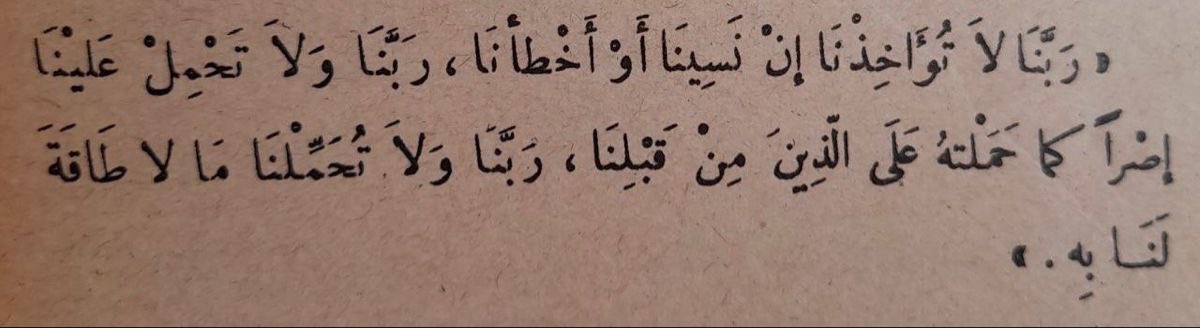 « رَبَّنَا لاَ تُؤَاخِذْنَا إِنْ نَسِينَا أَوْ أَخْطأْنَا ، رَبَّنَا وَلاَ تَحْمِلْ عَلَيْنَا
إصْراً كما حَمَلْتهُ عَلَى الّذِينَ مِنْ قَبْلِنَا ، رَبَّنَا وَلاَ تُحَمِّلْنَا مَا لا طَاقَةَ
لَنَا بِهِ . »